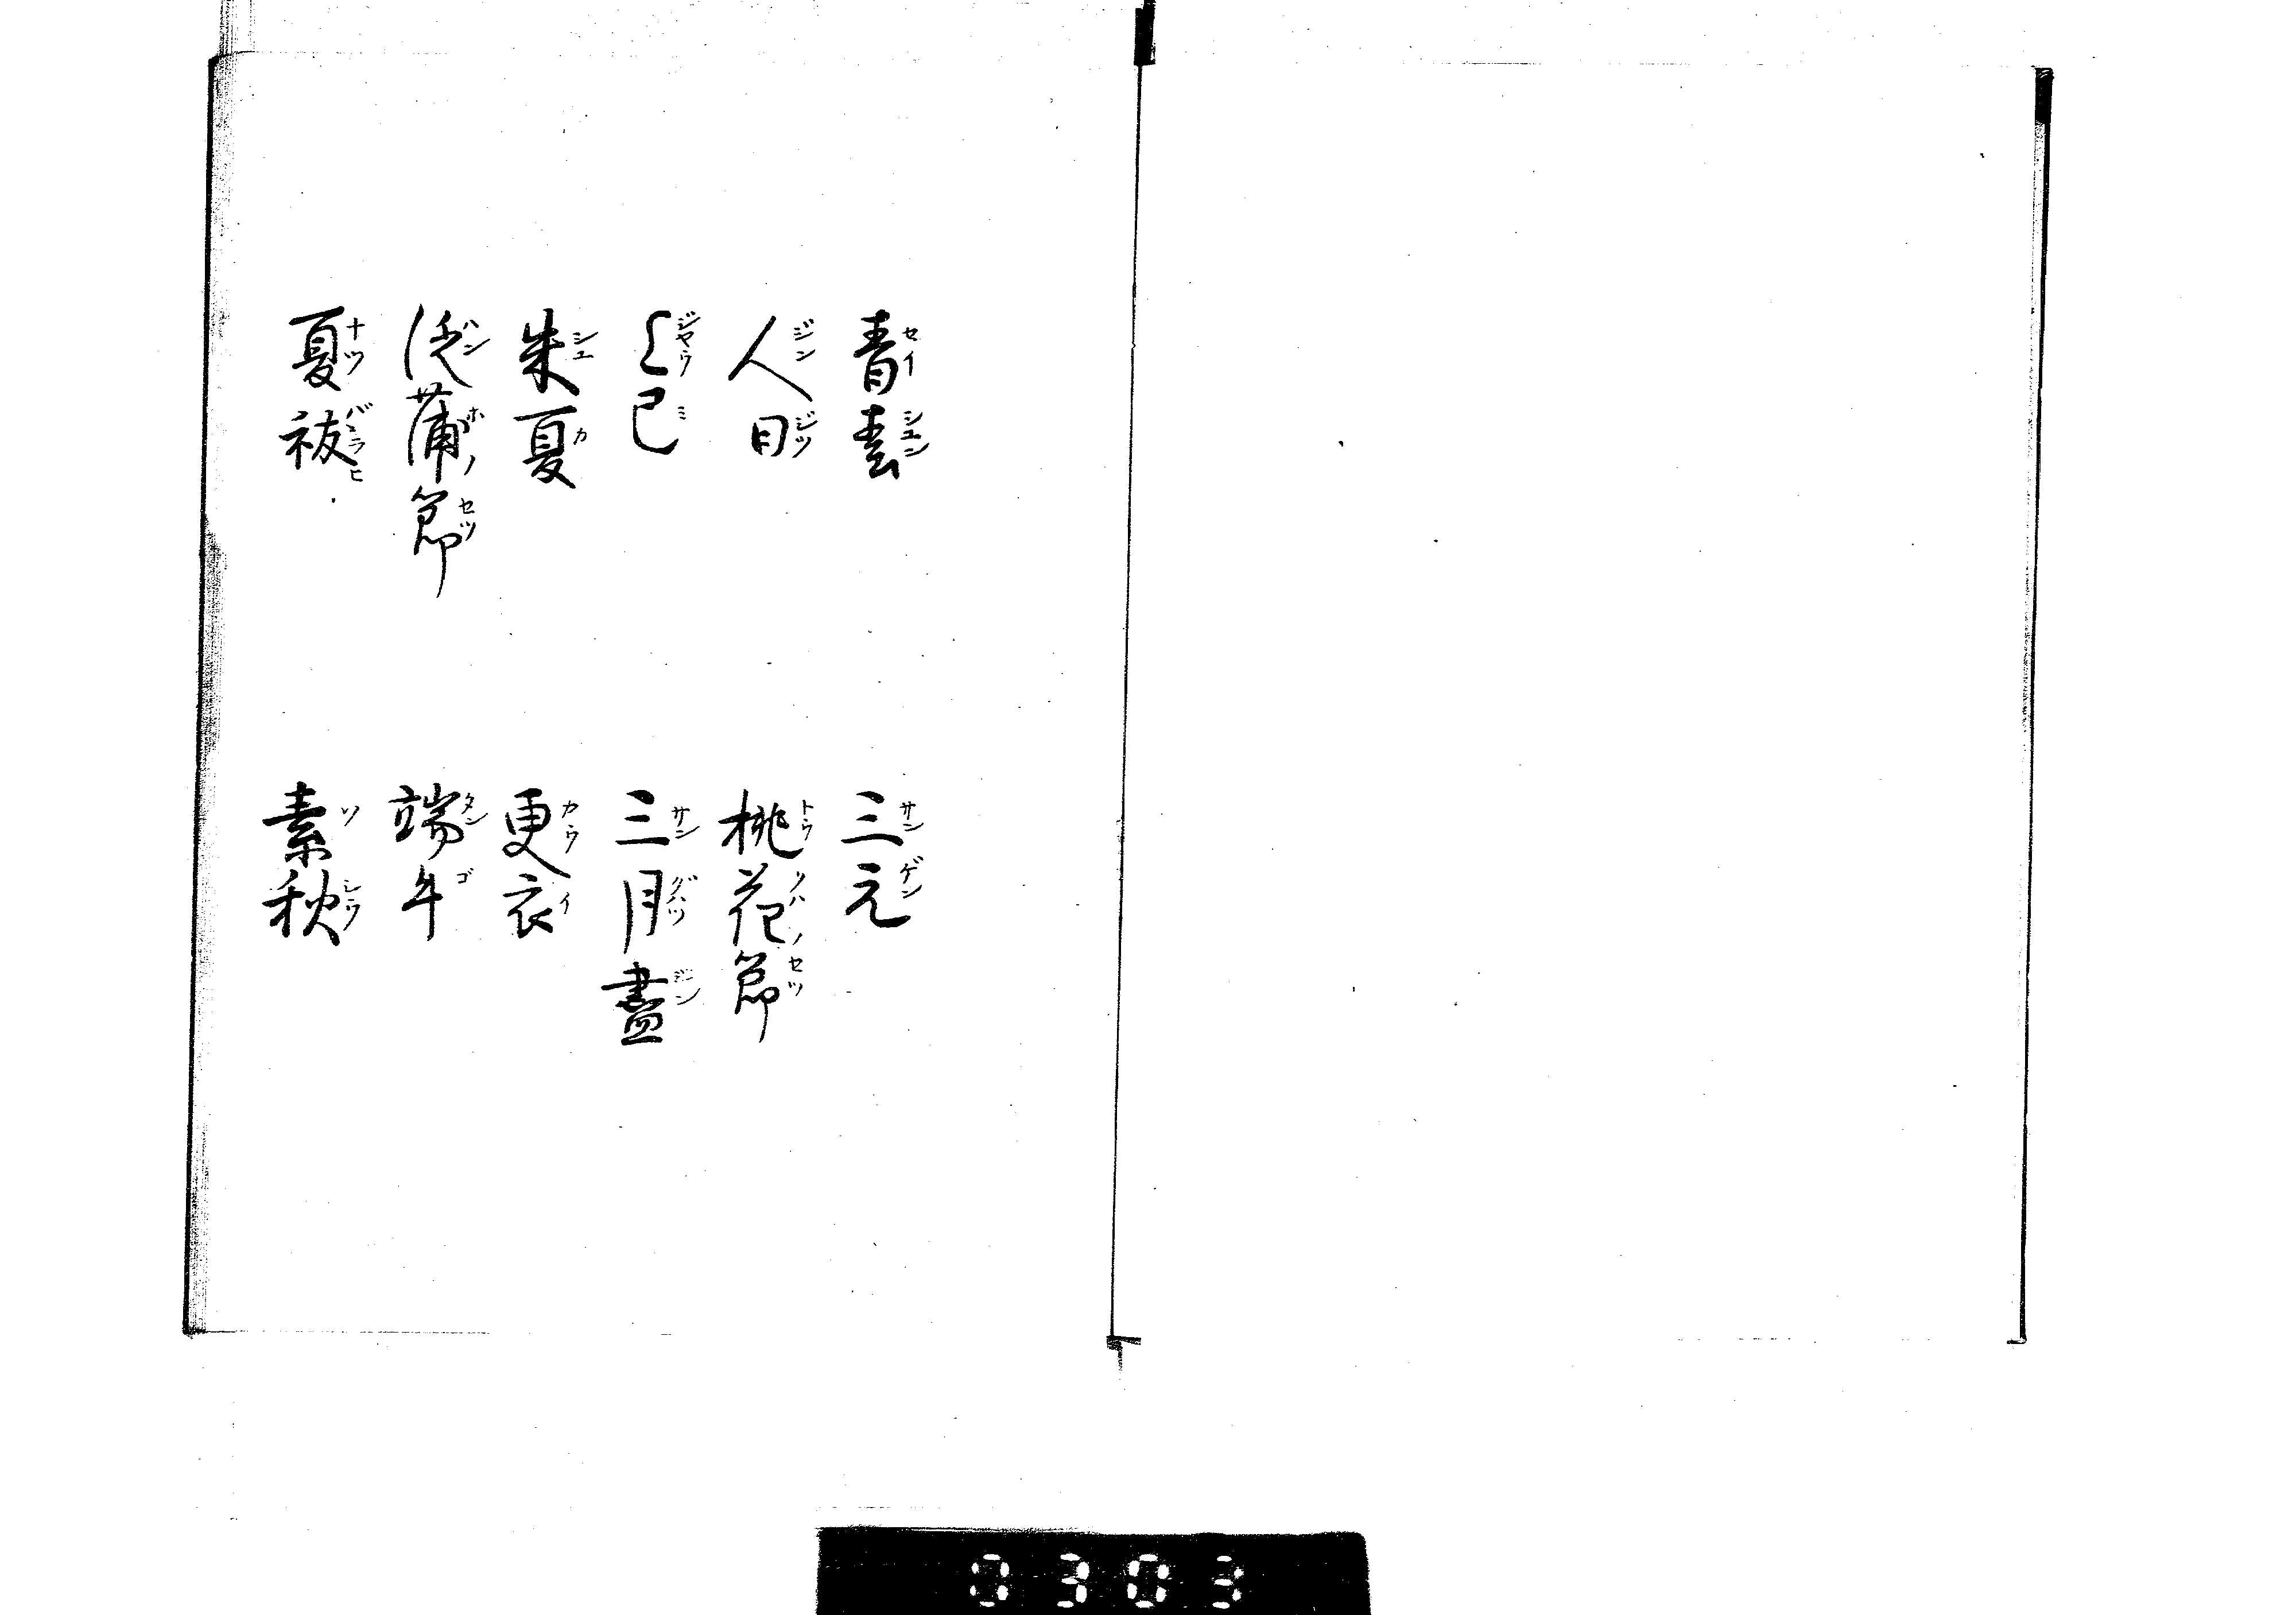 青春 三元
人日 桃花節
上巳 三月盡
朱夏 更衣
泛蒲節 端午
夏祓 素秋
0303